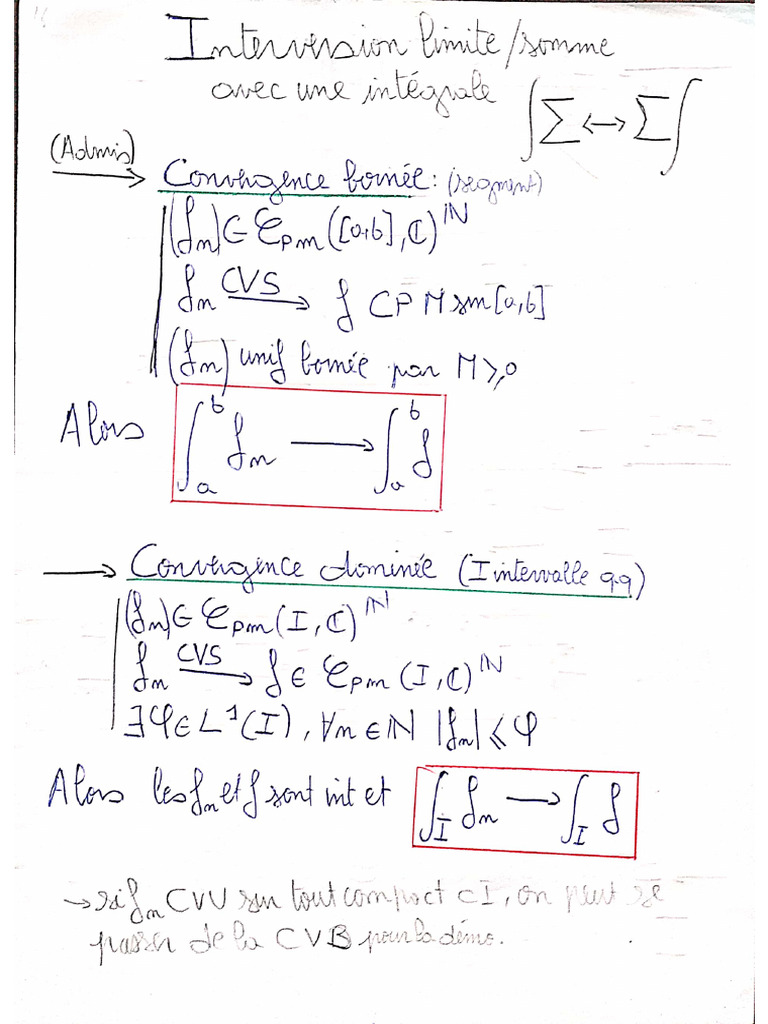 Interversion limite/somme
avec une intégrale ∫∑ ↔ ∑∫
(Admis)
→ Convergence bornée: (segment)
(fₙ) ∈ 𝒞pm([a,b],ℂ)^ℕ
fₙ —CVS→ f CPM sur [a,b]
(fₙ) unif bornée par M ⩾ 0
Alors ∫ₐᵇ fₙ → ∫ₐᵇ f
→ Convergence dominée (I intervalle qq)
(fₙ) ∈ 𝒞pm(I,ℂ)^ℕ
fₙ —CVS→ f ∈ 𝒞pm(I,ℂ)^ℕ
∃φ ∈ L¹(I), ∀n ∈ ℕ |fₙ| ⩽ φ
Alors les fₙ et f sont int et ∫_I fₙ → ∫_I f
→ si fₙ CVU sur tout compact ⊂ I, on peut se
passer de la CVB pour la démo.